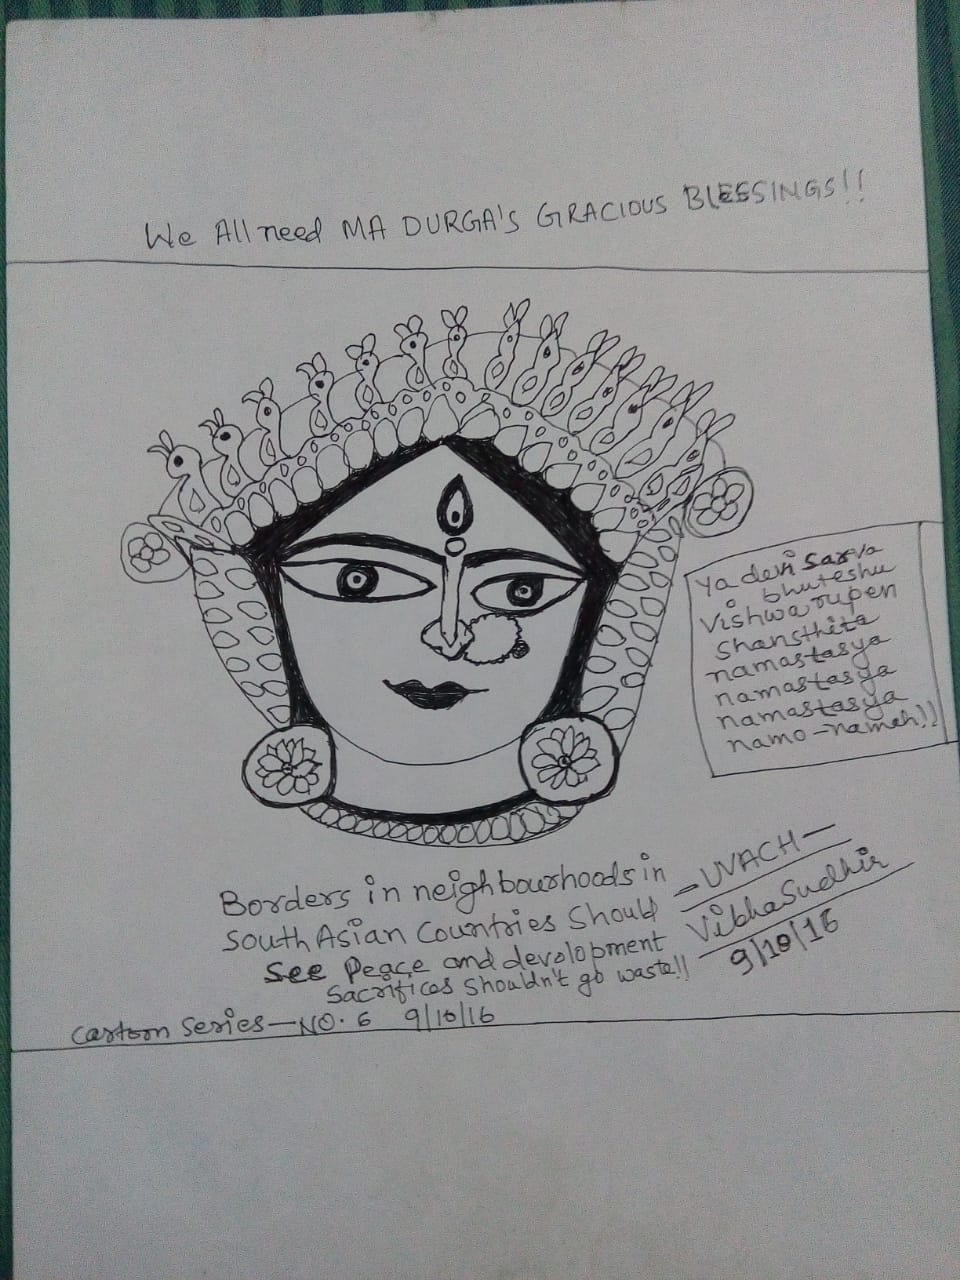 We All need MA DURGA'S GRACIOUS BLESSINGS!!
Ya devi sarva
bhuteshu
Vishwa rupen
Shansthita
namastasya
namastasya
namastasya
namo-namah!!
Borders in neighbourhoods in
South Asian Countries Should
See Peace and devolopment
Sacrifices Shouldn't go waste!!
- UVACH -
Vibha Sudhir
9/10/16
Cartoon Series - NO. 6 9/10/16